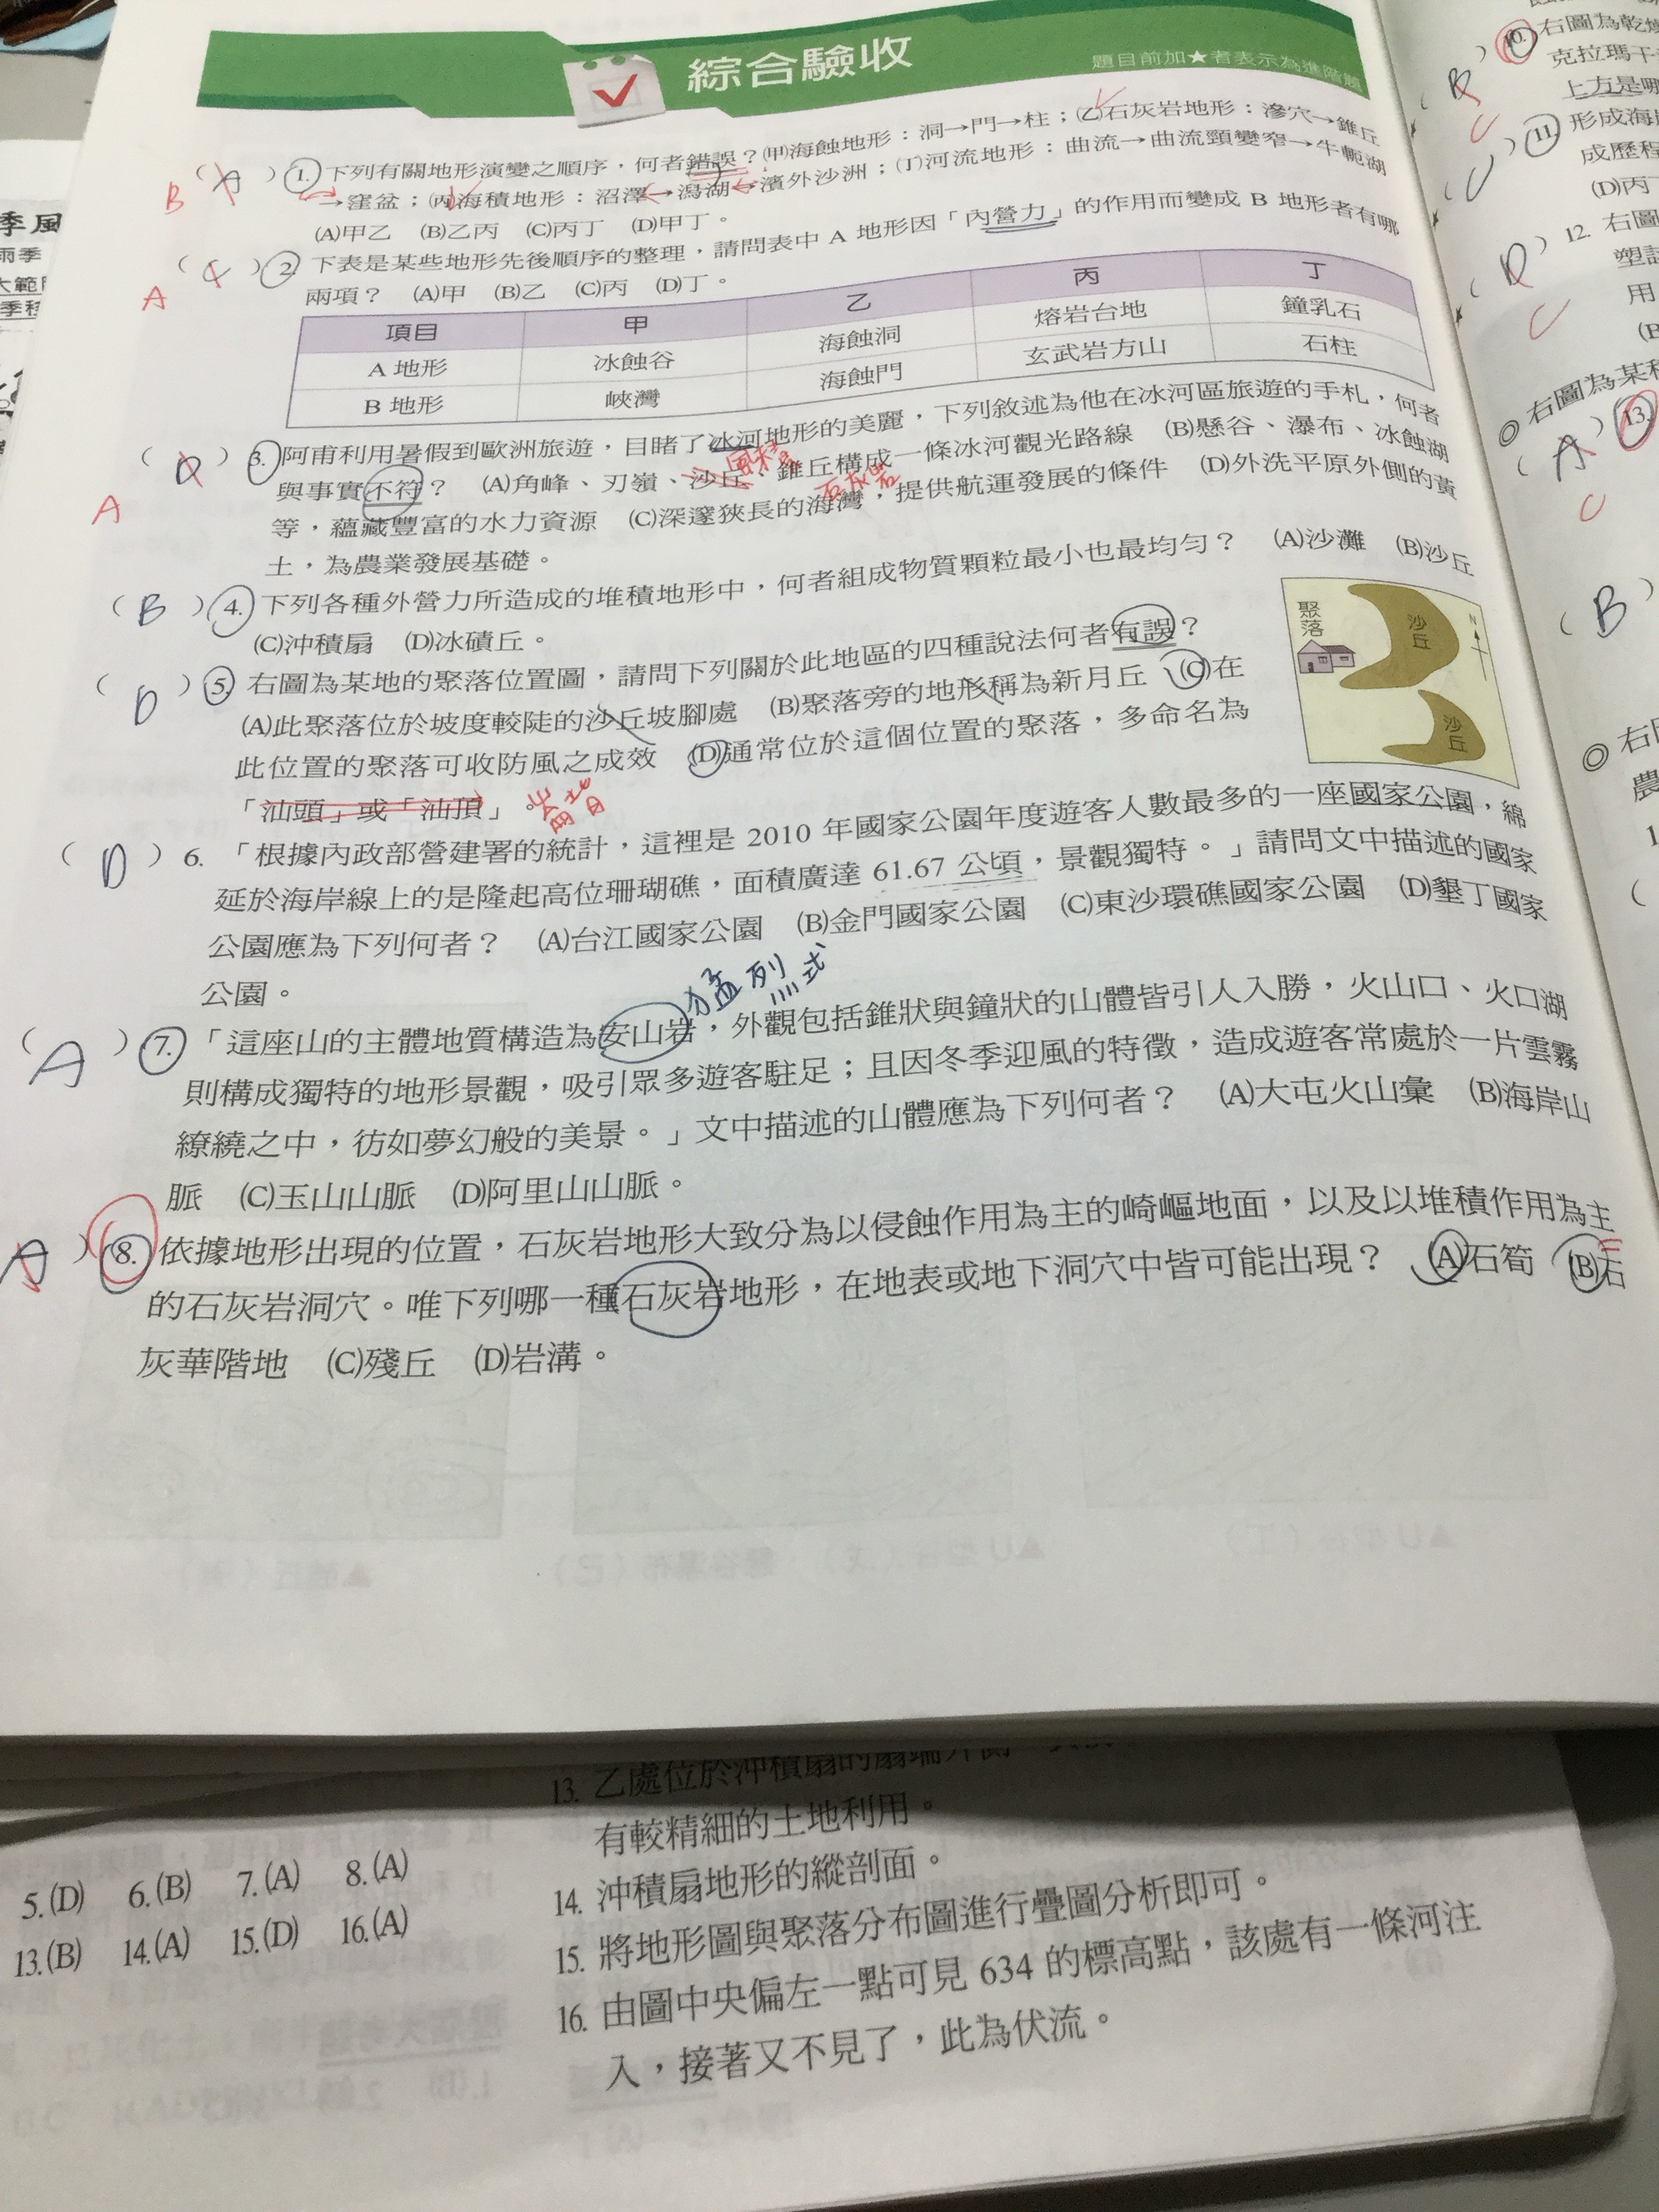 綜合驗收
題目前加★者表示為進階題
B ( A ) 1. 下列有關地形演變之順序，何者錯誤？(甲)海蝕地形：洞→門→柱；(乙)石灰岩地形：滲穴→錐丘
→窪盆；(丙)海積地形：沼澤→潟湖→濱外沙洲；(丁)河流地形：曲流→曲流頸變窄→牛軛湖
(A)甲乙 (B)乙丙 (C)丙丁 (D)甲丁。
A ( C ) 2. 下表是某些地形先後順序的整理，請問表中 A 地形因「內營力」的作用而變成 B 地形者有哪
兩項？ (A)甲 (B)乙 (C)丙 (D)丁。
項目 甲 乙 丙 丁
A 地形 冰蝕谷 海蝕洞 熔岩台地 鐘乳石
B 地形 峽灣 海蝕門 玄武岩方山 石柱
A ( D ) 3. 阿甫利用暑假到歐洲旅遊，目睹了冰河地形的美麗，下列敘述為他在冰河區旅遊的手札，何者
風積
與事實不符？ (A)角峰、刃嶺、沙丘、錐丘構成一條冰河觀光路線 (B)懸谷、瀑布、冰蝕湖
石灰岩
等，蘊藏豐富的水力資源 (C)深邃狹長的海灣，提供航運發展的條件 (D)外洗平原外側的黃
土，為農業發展基礎。
( B ) 4. 下列各種外營力所造成的堆積地形中，何者組成物質顆粒最小也最均勻？ (A)沙灘 (B)沙丘
(C)沖積扇 (D)冰磧丘。
( D ) 5. 右圖為某地的聚落位置圖，請問下列關於此地區的四種說法何者有誤？
(A)此聚落位於坡度較陡的沙丘坡腳處 (B)聚落旁的地形稱為新月丘 (C)在
此位置的聚落可收防風之成效 (D)通常位於這個位置的聚落，多命名為
「汕頭」或「汕頂」。
聚落
沙丘
沙丘
N
( D ) 6. 「根據內政部營建署的統計，這裡是 2010 年國家公園年度遊客人數最多的一座國家公園，綿
延於海岸線上的是隆起高位珊瑚礁，面積廣達 61.67 公頃，景觀獨特。」請問文中描述的國家
公園應為下列何者？ (A)台江國家公園 (B)金門國家公園 (C)東沙環礁國家公園 (D)墾丁國家
公園。
猛烈式
( A ) 7. 「這座山的主體地質構造為安山岩，外觀包括錐狀與鐘狀的山體皆引人入勝，火山口、火口湖
則構成獨特的地形景觀，吸引眾多遊客駐足；且因冬季迎風的特徵，造成遊客常處於一片雲霧
繚繞之中，彷如夢幻般的美景。」文中描述的山體應為下列何者？ (A)大屯火山彙 (B)海岸山
脈 (C)玉山山脈 (D)阿里山山脈。
A ) 8. 依據地形出現的位置，石灰岩地形大致分為以侵蝕作用為主的崎嶇地面，以及以堆積作用為主
的石灰岩洞穴。唯下列哪一種石灰岩地形，在地表或地下洞穴中皆可能出現？ (A)石筍 (B)石
灰華階地 (C)殘丘 (D)岩溝。
10. 右圖為乾燥
克拉瑪干
上方是哪
C
11. 形成海
成歷程
(D)丙丁
( D ) 12. 右圖
C
用
◎ 右圖為某種
( A ) 13.
C
( B )
◎ 右
農
季風
雨季
5.(D) 6.(B) 7.(A) 8.(A)
13.(B) 14.(A) 15.(D) 16.(A)
13. 乙處位於沖積扇的扇端外側
有較精細的土地利用。
14. 沖積扇地形的縱剖面。
15. 將地形圖與聚落分布圖進行疊圖分析即可。
16. 由圖中央偏左一點可見 634 的標高點，該處有一條河注
入，接著又不見了，此為伏流。